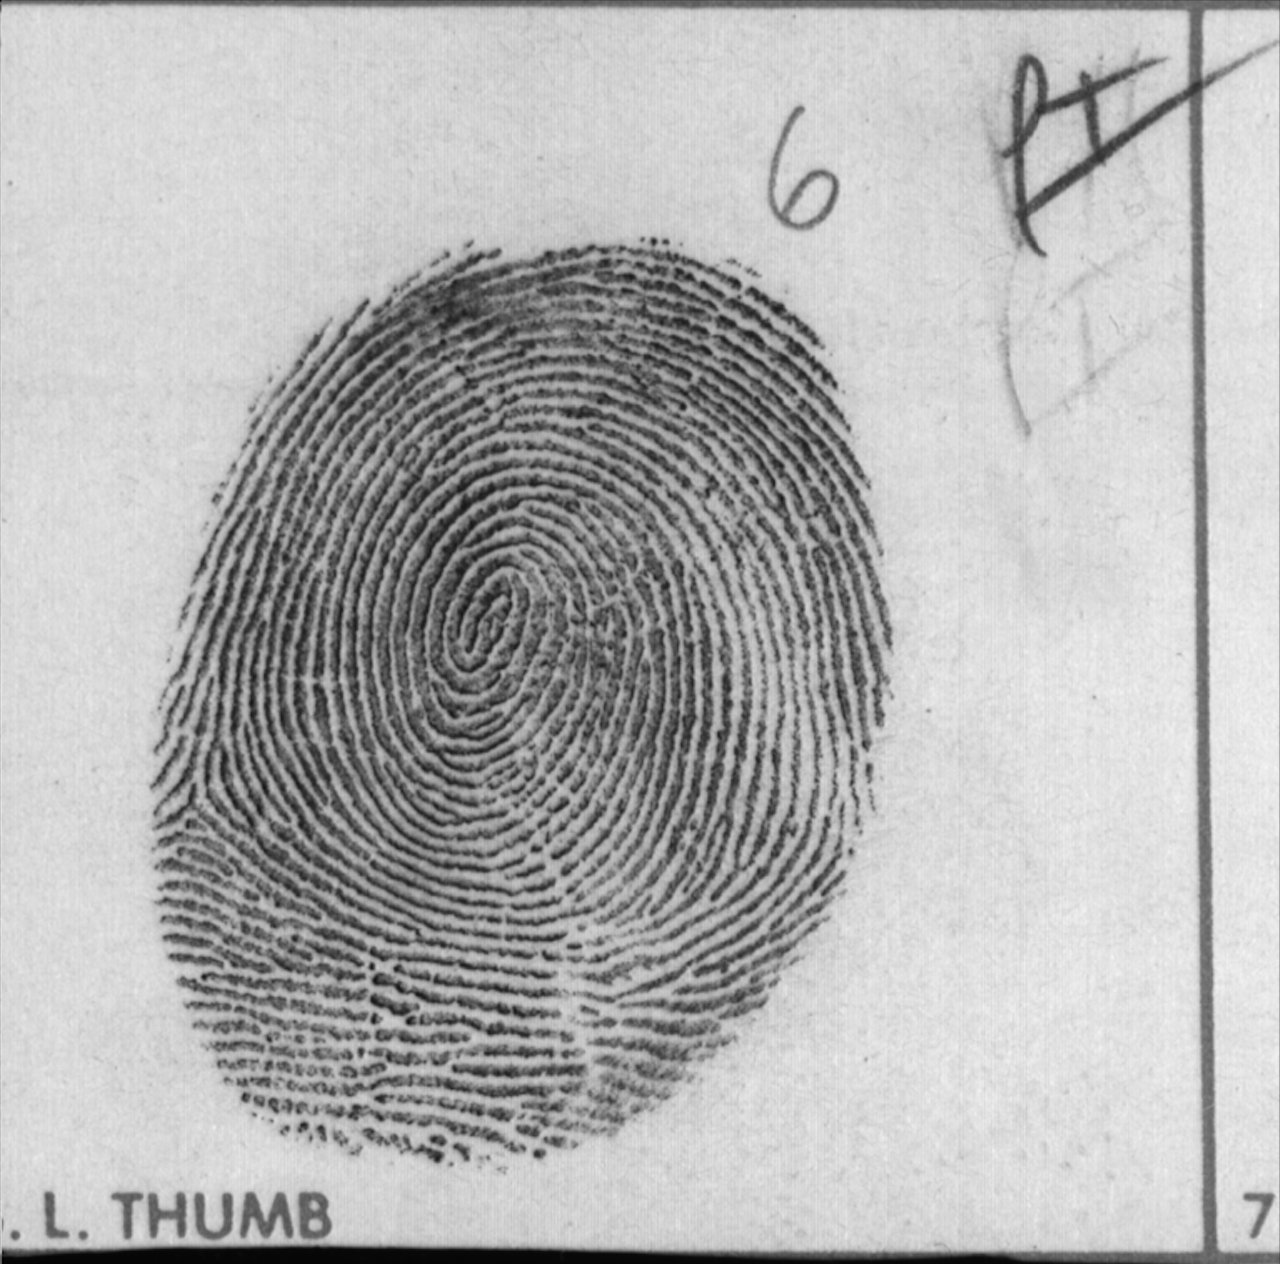 6
PI
. L. THUMB
7